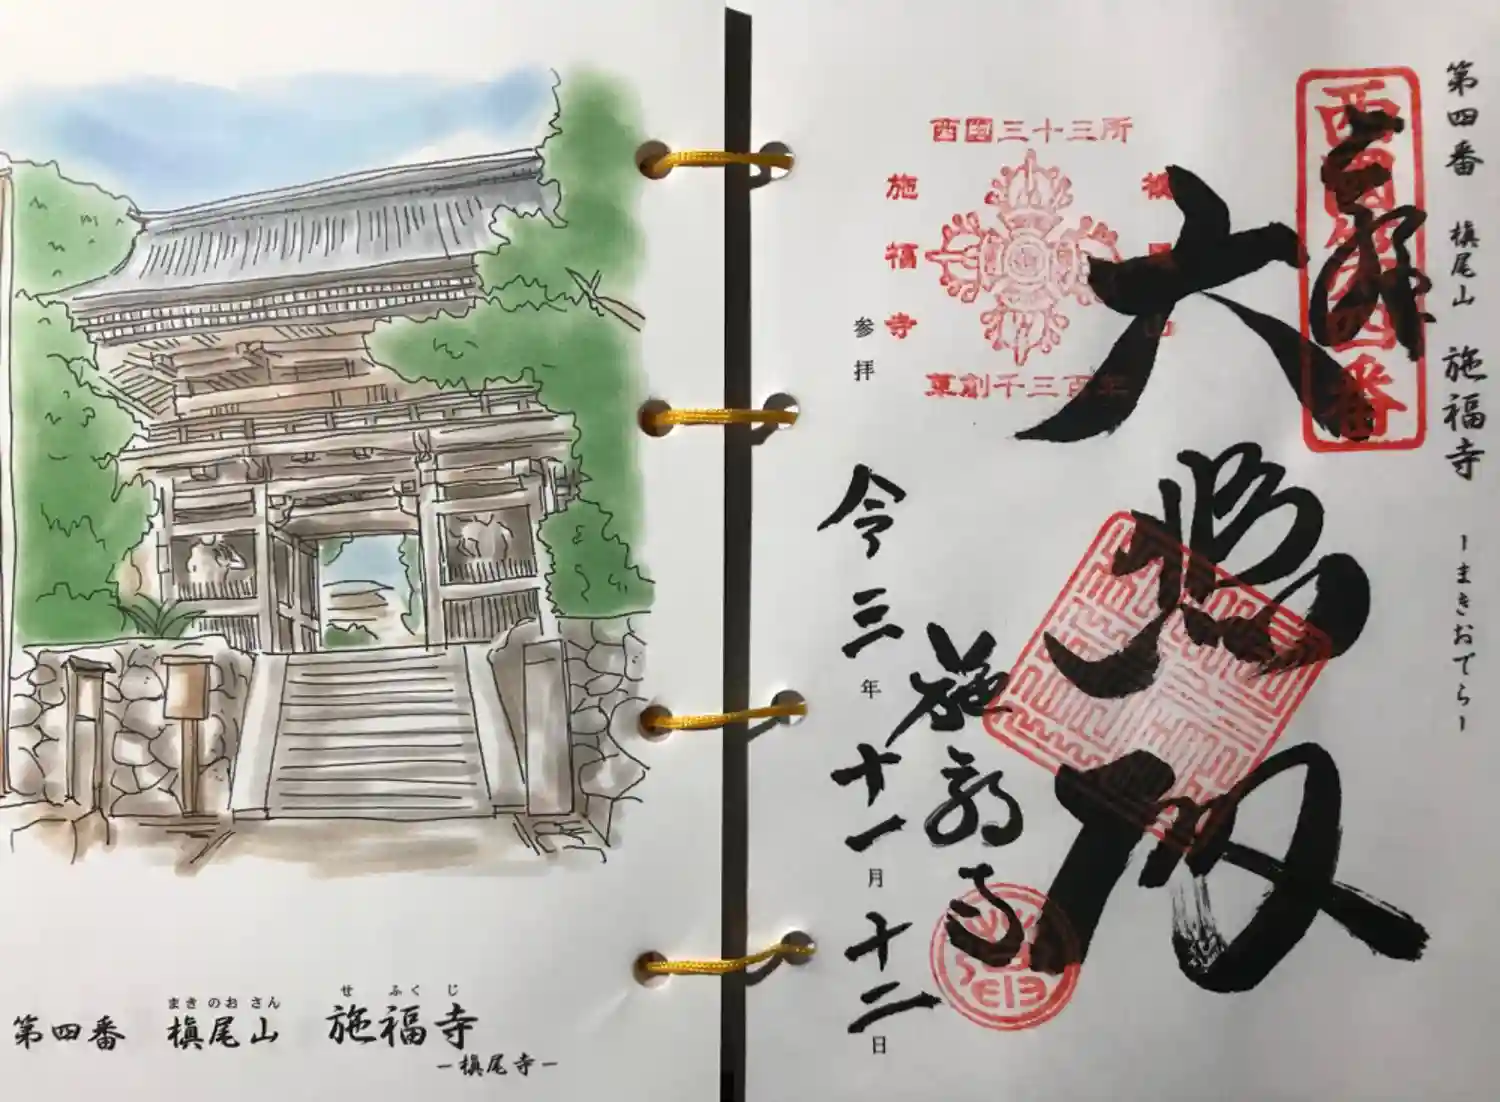 まき のお さん せ ふく じ
第四番 槇尾山 施福寺
ー槇尾寺ー
第四番 槇尾山 施福寺 ーまきおでらー
西国第四番
西国三十三所
槇尾山
施福寺
草創千三百年
参拝
施福寺
令三年十一月十二日